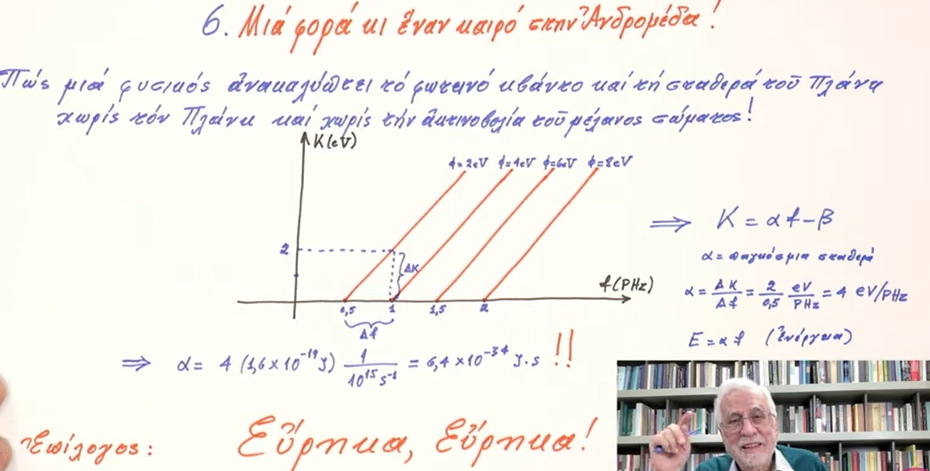 6. Μιά φορά κι ἕναν καιρό στην Ἀνδρομέδα!
Πῶς μιά φυσικός ἀνακαλύπτει τό φωτεινό κβάντο καί τή σταθερά τοῦ Πλάνκ
χωρίς τόν Πλάνκ καί χωρίς τήν ἀκτινοβολία τοῦ μέλανος σώματος!
K(eV)
ϕ=2eV ϕ=4eV ϕ=6eV ϕ=8eV
2
ΔK
f(PHz)
0,5 1 1,5 2
Δf
⟹ K = αf-β
α = παγκόσμια σταθερά
α = ΔK/Δf = 2/0,5 eV/PHz = 4 eV/PHz
E = αf (ἐνέργεια)
⟹ α = 4 (1,6×10⁻¹⁹J) 1/10¹⁵s⁻¹ = 6,4×10⁻³⁴ J·s !!
Ἐπίλογος: Εὕρηκα, Εὕρηκα!